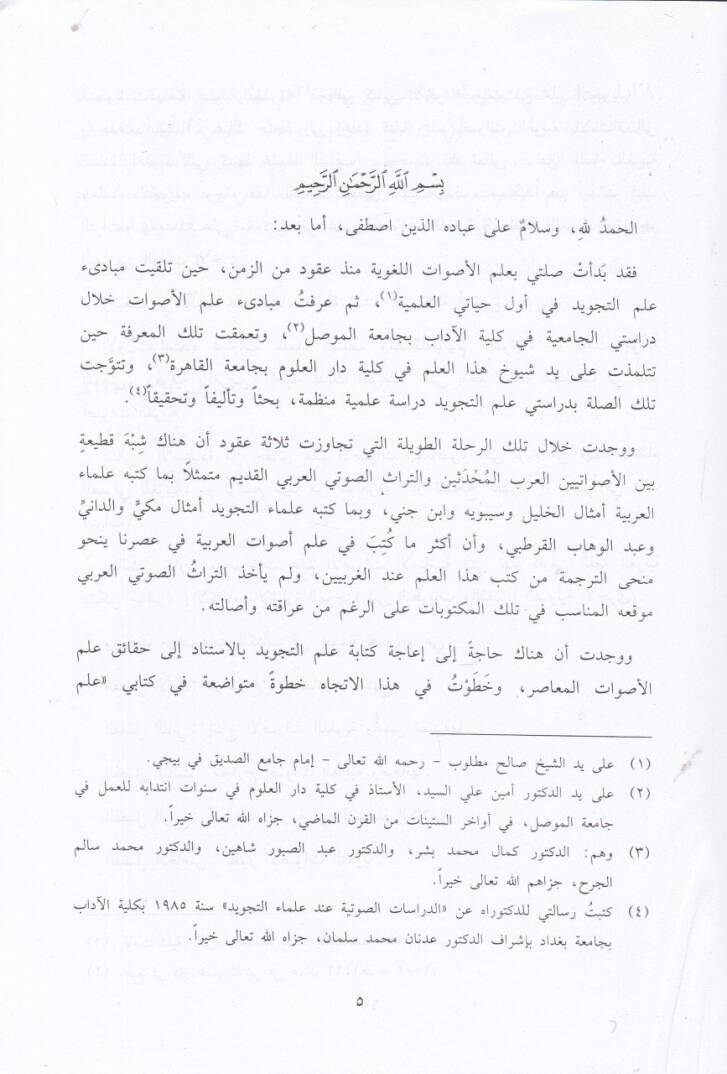 بِسْمِ اللَّهِ الرَّحْمَٰنِ الرَّحِيمِ
الحمدُ للهِ، وسلامٌ على عباده الذين اصطفى، أما بعد:
فقد بَدَأتْ صلتي بعلم الأصوات اللغوية منذ عقود من الزمن، حين تلقيت مبادىء
علم التجويد في أول حياتي العلمية(١)، ثم عرفتُ مبادىء علم الأصوات خلال
دراستي الجامعية في كلية الآداب بجامعة الموصل(٢)، وتعمقت تلك المعرفة حين
تتلمذت على يد شيوخ هذا العلم في كلية دار العلوم بجامعة القاهرة(٣)، وتتوَّجت
تلك الصلة بدراستي علم التجويد دراسة علمية منظمة، بحثاً وتأليفاً وتحقيقاً(٤)
ووجدت خلال تلك الرحلة الطويلة التي تجاوزت ثلاثة عقود أن هناك شِبْهَ قطيعةٍ
بين الأصواتيين العرب المُحْدَثين والتراث الصوتي العربي القديم متمثلاً بما كتبه علماء
العربية أمثال الخليل وسيبويه وابن جني، وبما كتبه علماء التجويد أمثال مكيٍّ والدانيِّ
وعبد الوهاب القرطبي، وأن أكثر ما كُتِبَ في علم أصوات العربية في عصرنا ينحو
منحى الترجمة من كتب هذا العلم عند الغربيين، ولم يأخذ التراثُ الصوتي العربي
موقعه المناسب في تلك المكتوبات على الرغم من عراقته وأصالته.
ووجدت أن هناك حاجةً إلى إعاجة كتابة علم التجويد بالاستناد إلى حقائق علم
الأصوات المعاصر، وخَطَوْتُ في هذا الاتجاه خطوةً متواضعة في كتابي «علم
(١) على يد الشيخ صالح مطلوب – رحمه الله تعالى – إمام جامع الصديق في بيجي.
(٢) على يد الدكتور أمين علي السيد، الأستاذ في كلية دار العلوم في سنوات انتدابه للعمل في
جامعة الموصل، في أواخر الستينات من القرن الماضي، جزاه الله تعالى خيراً.
(٣) وهم: الدكتور كمال محمد بشر، والدكتور عبد الصبور شاهين، والدكتور محمد سالم
الجرح، جزاهم الله تعالى خيراً.
(٤) كتبتُ رسالتي للدكتوراه عن «الدراسات الصوتية عند علماء التجويد» سنة ١٩٨٥ بكلية الآداب
بجامعة بغداد بإشراف الدكتور عدنان محمد سلمان، جزاه الله تعالى خيراً.
٥